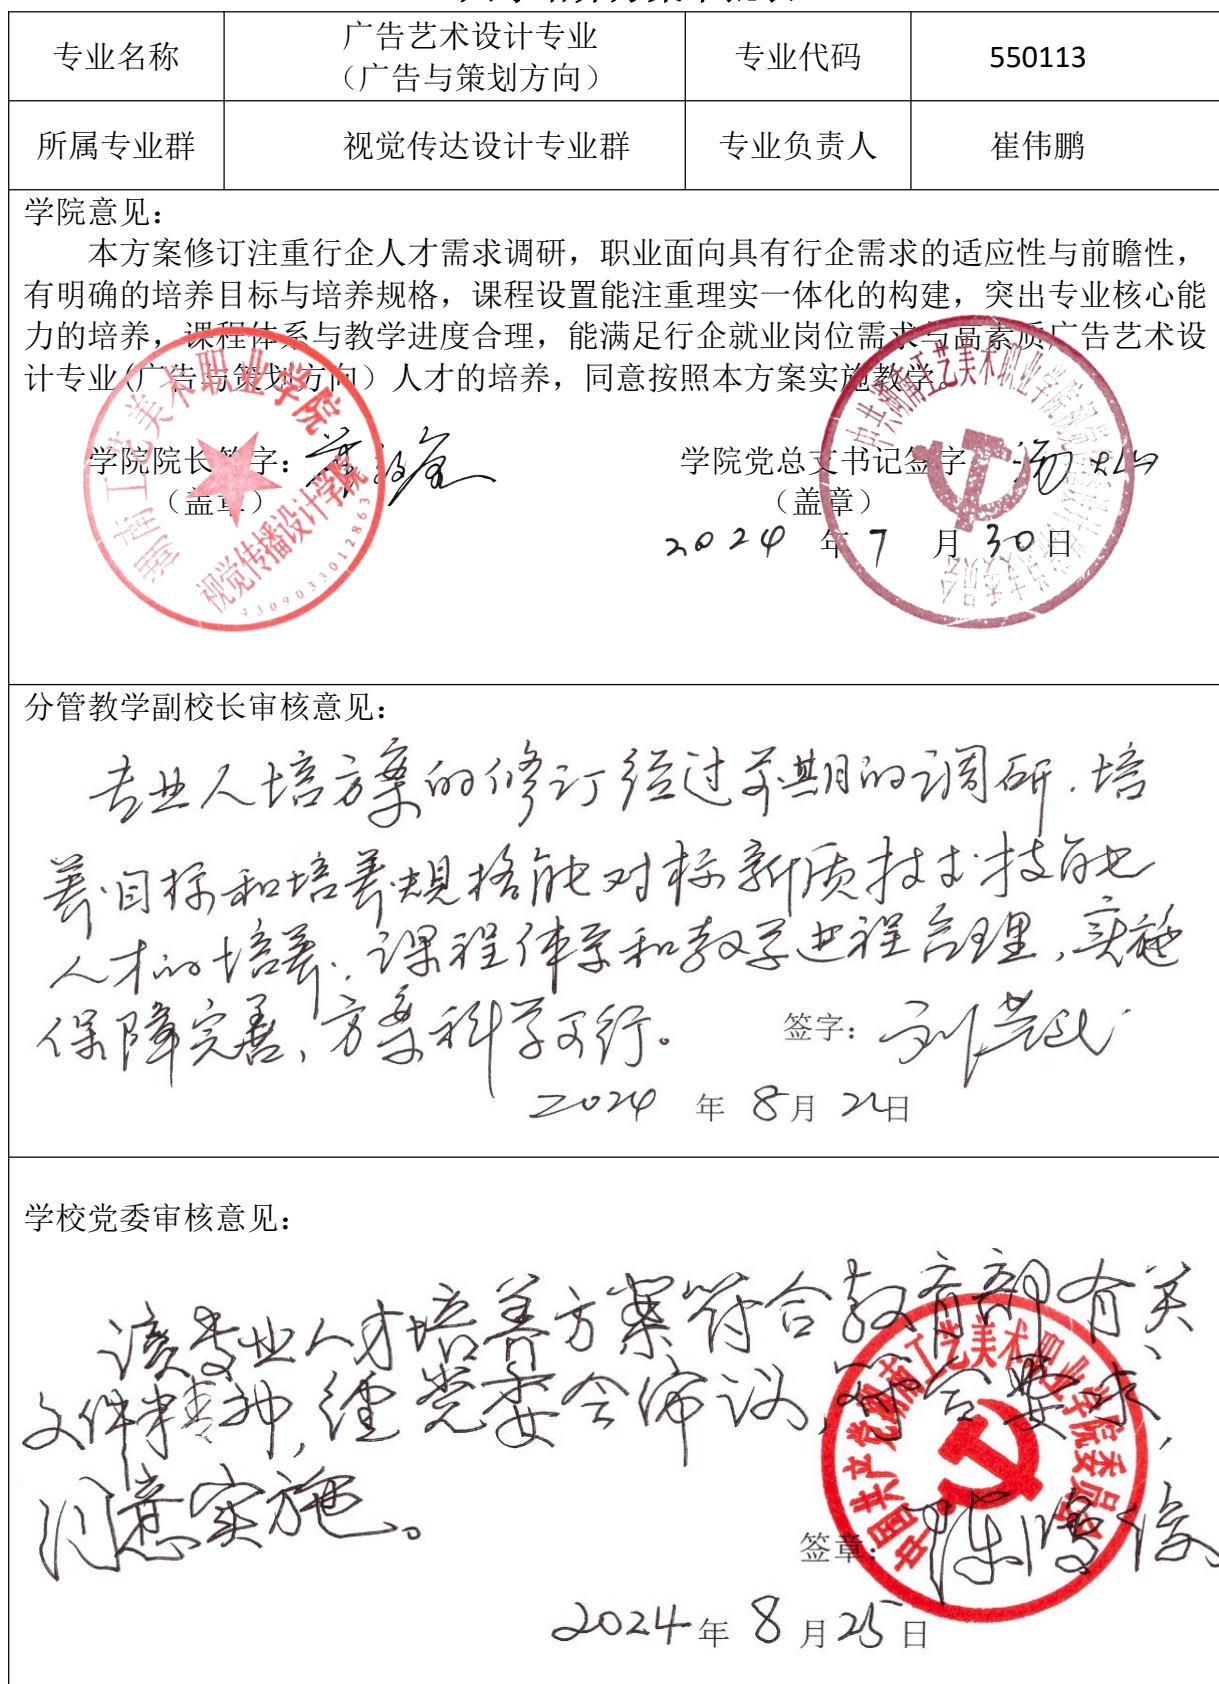 专业名称 广告艺术设计专业（广告与策划方向） 专业代码 550113
所属专业群 视觉传达设计专业群 专业负责人 崔伟鹏
学院意见：
本方案修订注重行企人才需求调研，职业面向具有行企需求的适应性与前瞻性，
有明确的培养目标与培养规格，课程设置能注重理实一体化的构建，突出专业核心能
力的培养，课程体系与教学进度合理，能满足行企就业岗位需求与高素质广告艺术设
计专业（广告与策划方向）人才的培养，同意按照本方案实施教学。
湖南工艺美术职业学院
视觉传播设计学院
4309033012863
学院院长签字：
（盖章）
学院党总支书记签字
（盖章）
2024 年 7 月 30 日
分管教学副校长审核意见：
专业人培方案的修订经过前期的调研，培
养目标和培养规格能对标新质技术技能
人才的培养，课程体系和教学进程合理，实施
保障完善，方案科学可行。 签字：
2024 年 8 月 日
学校党委审核意见：
该专业人才培养方案符合教育部有关
文件精神，经党委会审议，符合要求，
同意实施。
中国共产党湖南工艺美术职业学院委员会
签章：
2024 年 8 月 25 日